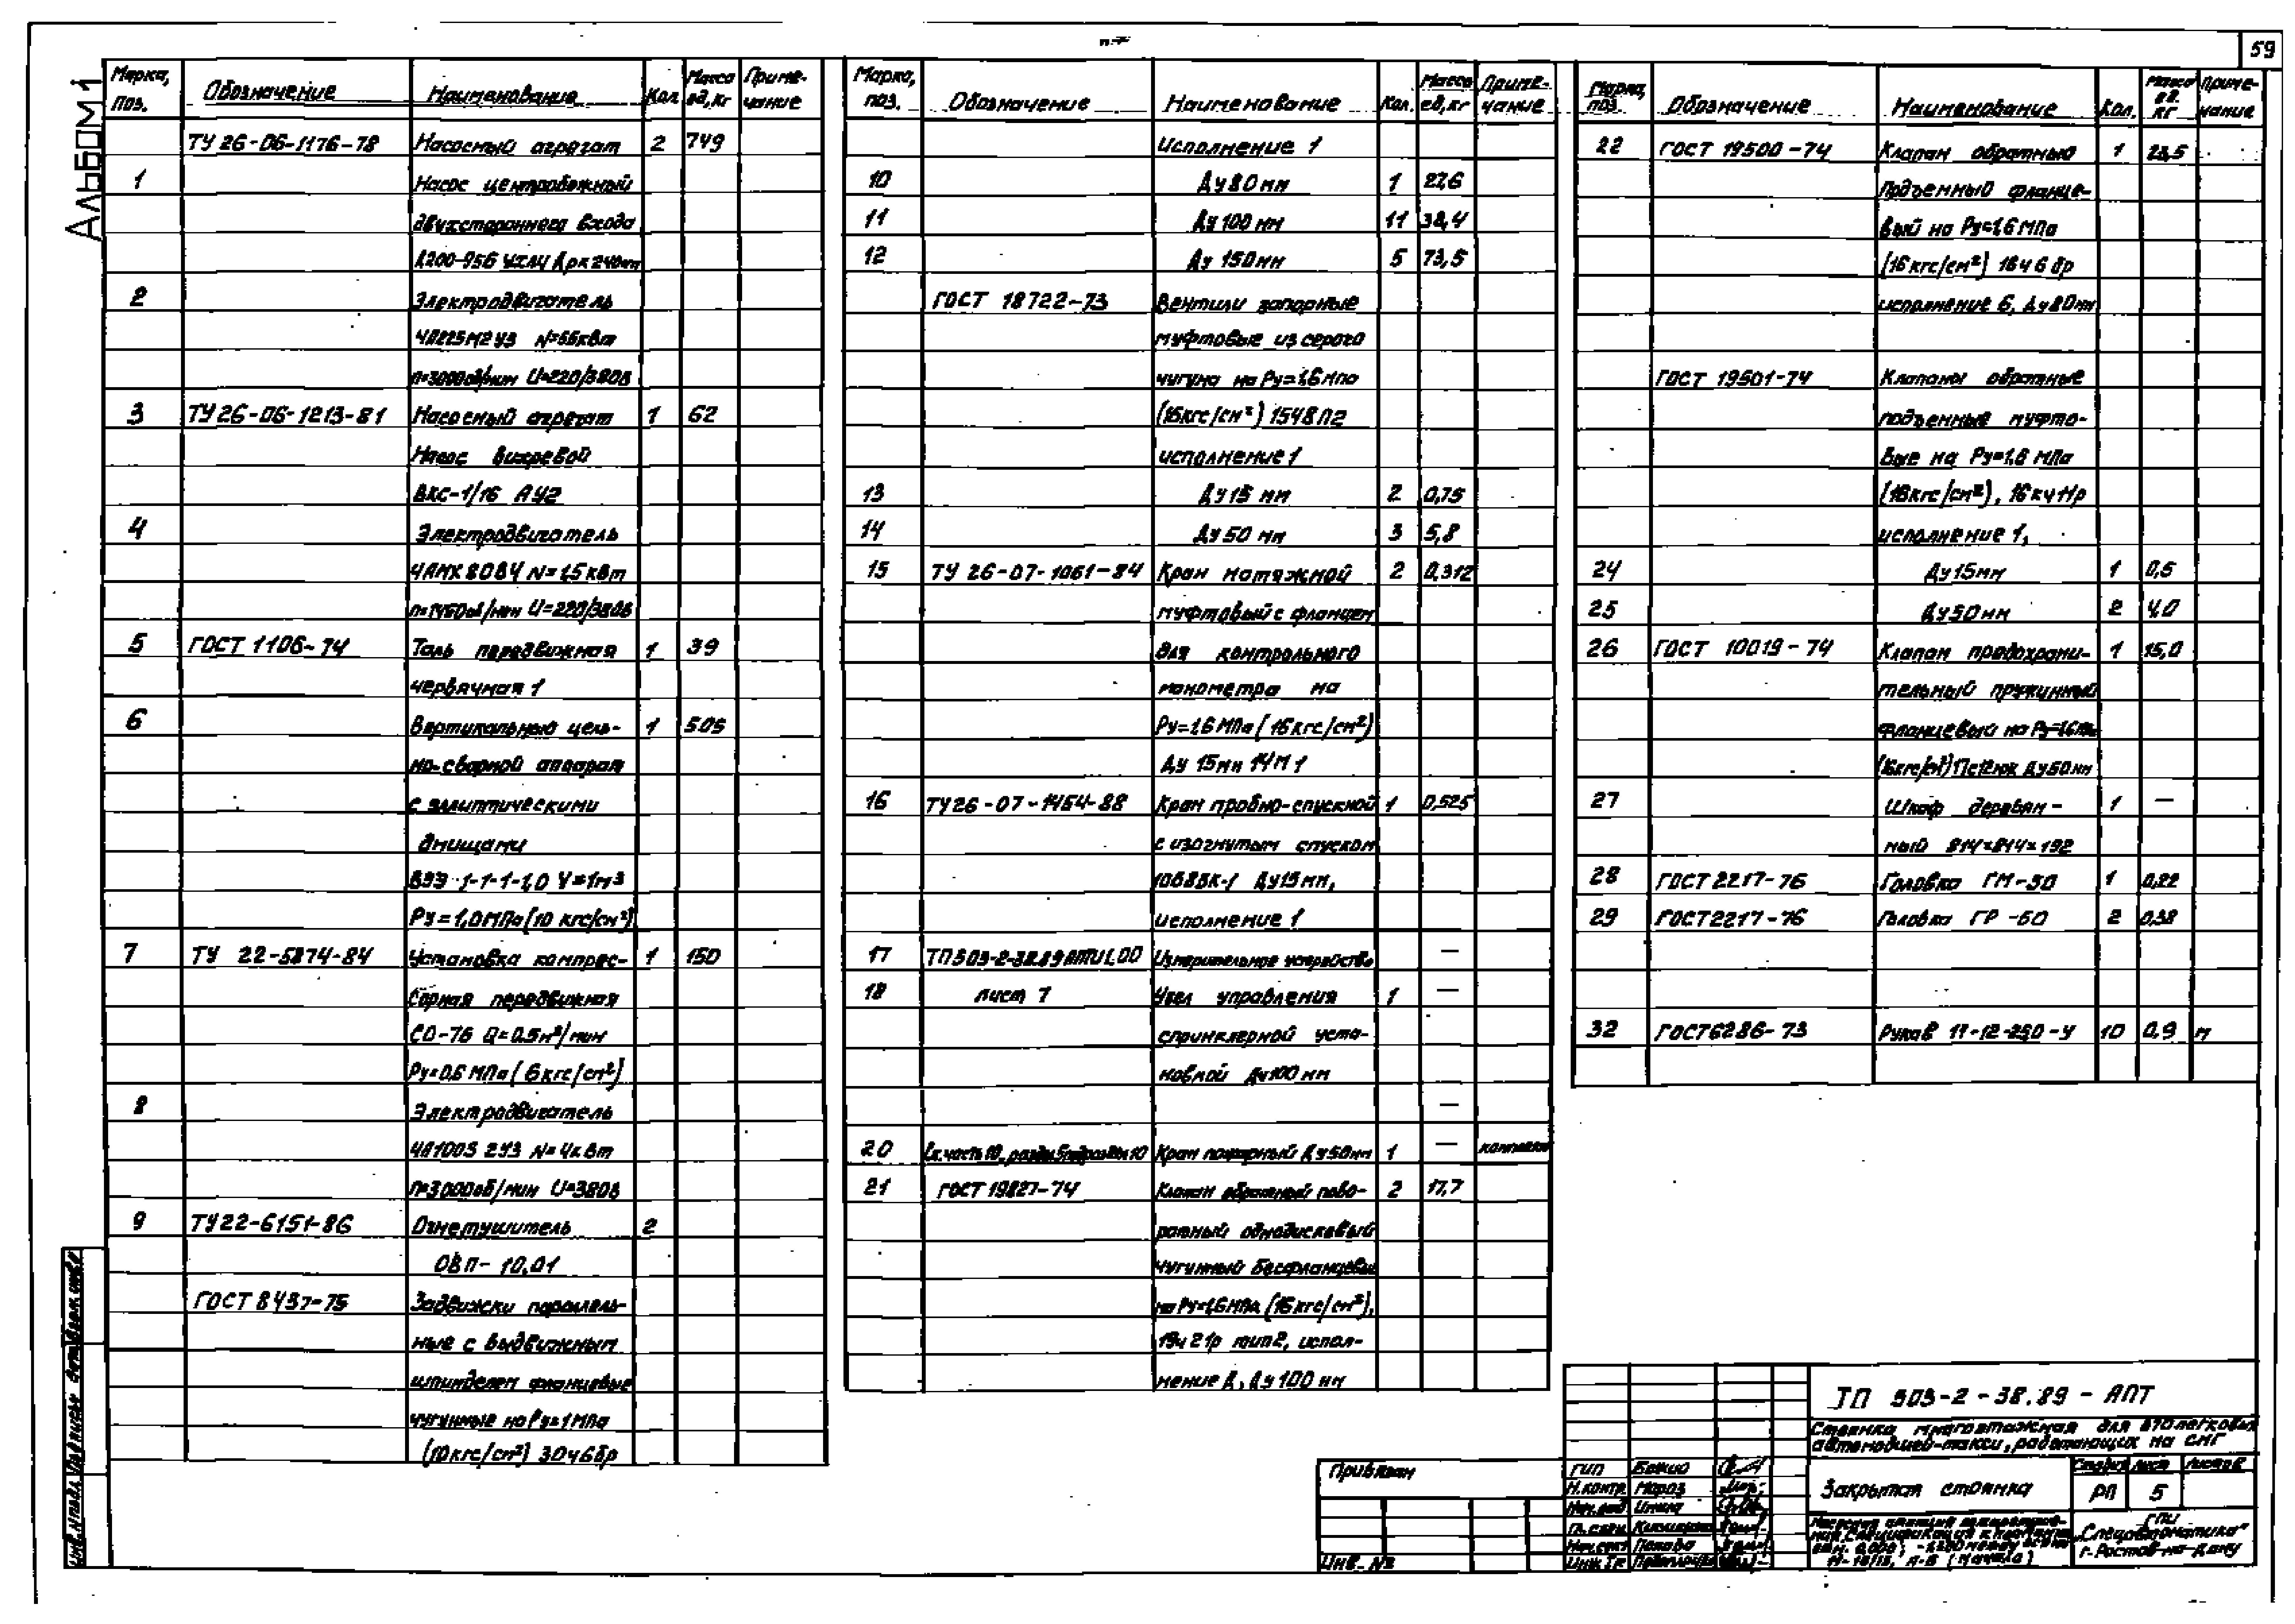 59
Альбом 1
Марка, поз. Обозначение Наименование Кол Масса ед, кг Приме- чание
ТУ 26-06-1176-78 Насосный агрегат 2 749
1 Насос центробежный
двухстороннего входа
Д200-95б УХЛ4 Дрк=240мм
2 Электродвигатель
4А225М2У3 N=55кВт
n=3000об/мин U=220/380В
3 ТУ 26-06-1213-81 Насосный агрегат 1 62
Насос вихревой
ВКС-1/16 АУ2
4 Электродвигатель
4АМХ80В4 N=1,5кВт
n=1450об/мин U=220/380В
5 ГОСТ 1106-74 Таль передвижная 1 39
червячная 1
6 Вертикальный цель- 1 505
но-сварной аппарат
с эллиптическими
днищами
ВЭЭ 1-1-1-1,0 V=1м3
Ру=1,0МПа(10 кгс/см²)
7 ТУ 22-5874-84 Установка компрес- 1 150
сорная передвижная
СО-7б Q=0.5м³/мин
Ру=0,6 МПа (6кгс/см²)
8 Электродвигатель
4А100S 2У3 N=4кВт
n=3000об/мин U=380В
9 ТУ22-6151-86 Огнетушитель 2
ОВП-10,01
ГОСТ 8437-75 Задвижки параллель-
ные с выдвижным
шпинделем фланцевые
чугунные на Ру=1МПа
(10кгс/см²) 30ч6бр
Марка, поз. Обозначение Наименование Кол. Масса ед, кг Приме- чание
Исполнение 1
10 Ду80мм 1 27,6
11 Ду100мм 11 38,4
12 Ду 150мм 5 73,5
ГОСТ 18722-73 Вентили запорные
муфтовые из серого
чугуна на Ру=1,6Мпа
(16кгс/см²) 15ч8п2
исполнение 1
13 Ду15 мм 2 0,75
14 Ду50 мм 3 5,8
15 ТУ 26-07-1061-84 Кран натяжной 2 0,312
муфтовый с фланцем
для контрольного
манометра на
Ру=1,6 МПа (16кгс/см²)
Ду 15мм 14М1
16 ТУ26-07-1454-88 Кран пробно-спускной 1 0,525
с изогнутым спуском
10Б8БК-1 Ду15мм,
исполнение 1
17 ТП503-2-38.89 Измерительное устройство —
18 лист 7 Узел управления 1 —
спринклерной уста-
новкой Ду100мм
—
20 Кран пожарный Ду50мм 1 —
21 ГОСТ 19827-74 Клапан обратный пово- 2 17,7
ротный однодисковый
чугунный бесфланцевый
на Ру=1,6МПа (16кгс/см²),
19ч21р тип2, испол-
нение Д, Ду100 мм
Марка, поз. Обозначение Наименование Кол. Масса ед. кг Приме- чание
22 ГОСТ 19500-74 Клапан обратный 1 23,5
подъемный фланце-
вый на Ру=1,6МПа
(16кгс/см²) 16ч6бр
исполнение 6, Ду80мм
ГОСТ 19501-74 Клапаны обратные
подъемные муфто-
вые на Ру=1,6 МПа
(16кгс/см²), 16кч11р
исполнение 1,
24 Ду15мм 1 0,5
25 Ду50мм 2 4,0
26 ГОСТ 10019-74 Клапан предохрани- 1 15,0
тельный пружинный
фланцевый на Ру=1,6Мпа
(16кгс/см²) Ду50мм
27 Шкаф деревян- 1 —
ный 814×814×192
28 ГОСТ2217-76 Головка ГМ-50 1 0,22
29 ГОСТ2217-76 Головка ГР-50 2 0,38
32 ГОСТ6286-73 Рукав 11-12-250-У 10 0,9 м
ТП 503-2-38.89-АПТ
Стоянка многоэтажная для 870 легковых
автомобилей-такси, работающих на СНГ
Закрытая стоянка
Стадия Лист Листов
РП 5
ГПИ
"Спецавтоматика"
г. Ростов-на-Дону
Привязан
Инв. №
ГИП
Н.контр. Мороз
Нач.отд.
Инв.№подл. Подпись и дата Взам.инв.№